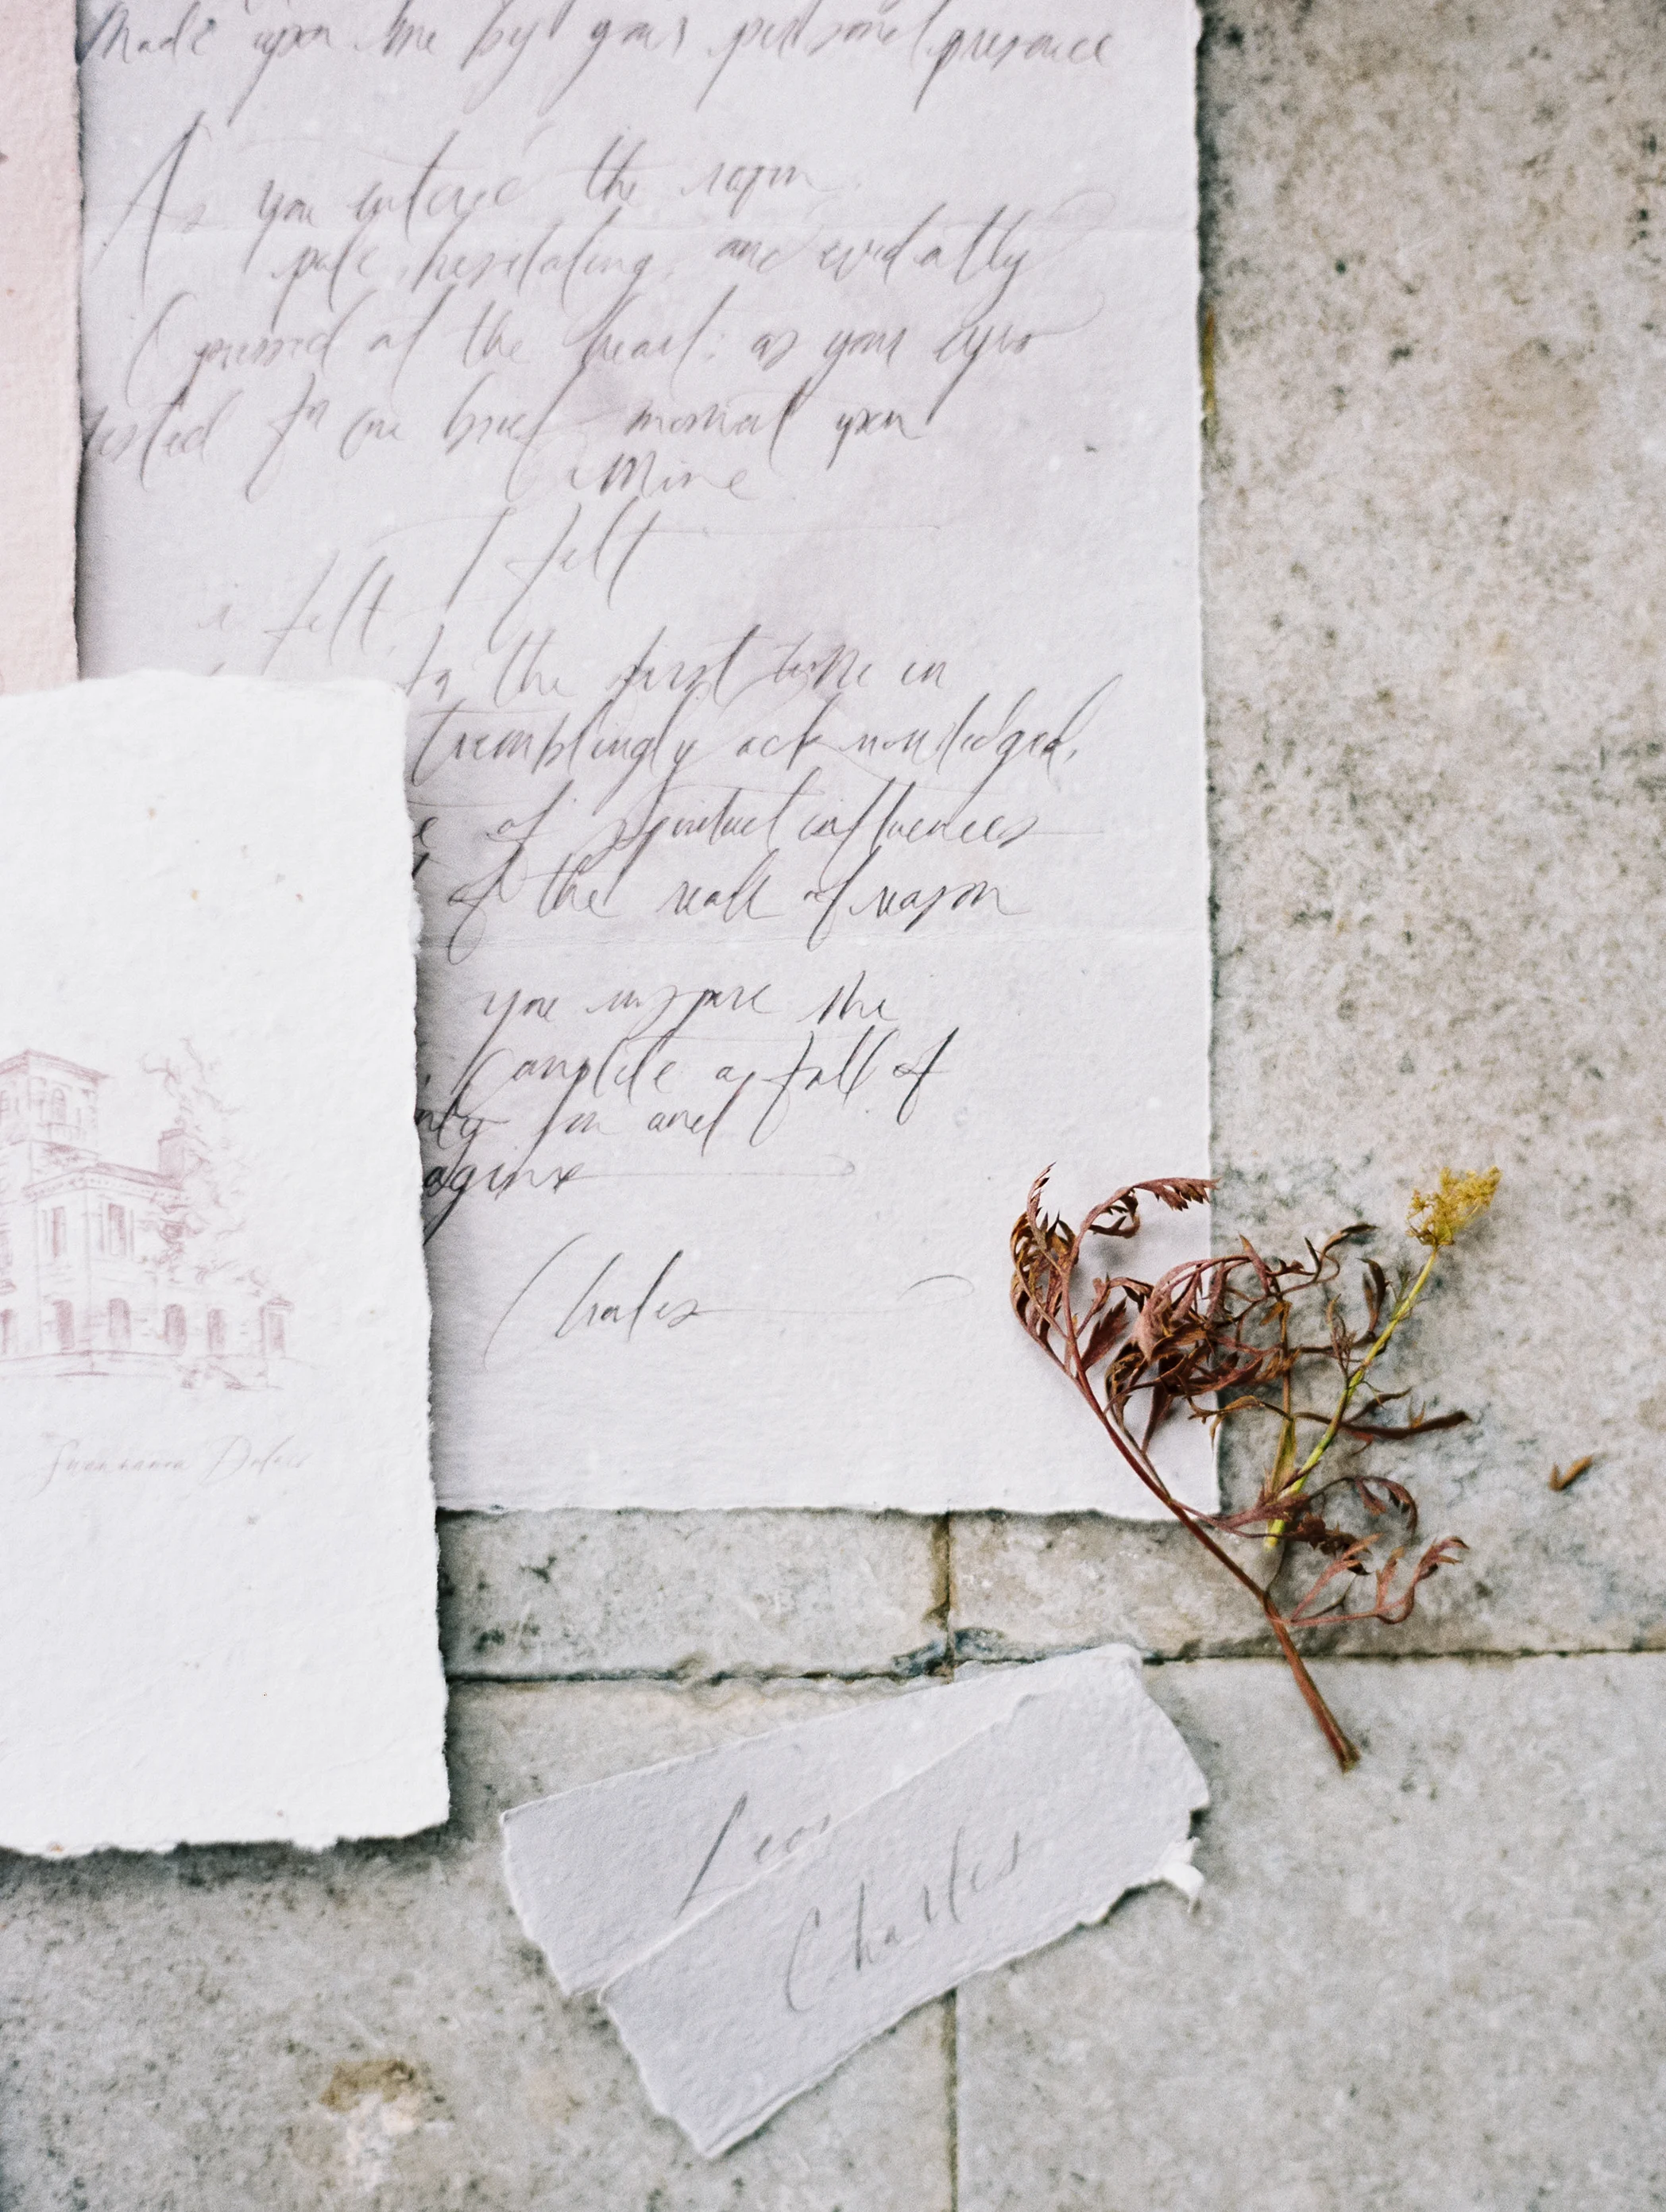 Made upon me by your personal presence
As you entered the room
pale, hesitating, and evidently
oppressed at the heart; as your eyes
rested for one brief moment upon
Mine
I felt
i felt,
for the first time in
tremblingly acknowledged,
e of spiritual influences
of the reach of reason
you inspire the
of
nly for and
agine
Charles
Charles